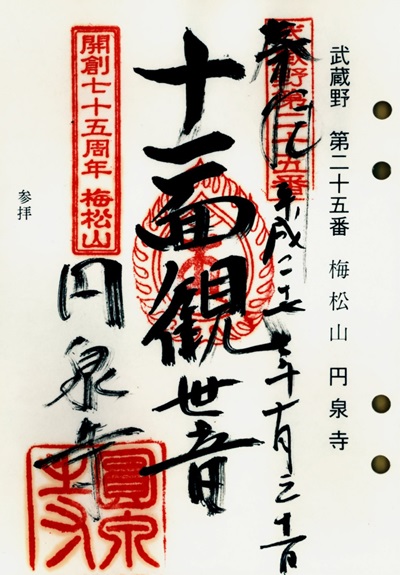 武蔵野 第二十五番 梅松山 円泉寺
武蔵野第二十五番
奉拝 平成二十七年十月三十一日
十一面観世音
開創七十五周年 梅松山
円泉寺
参拝
圓泉寺